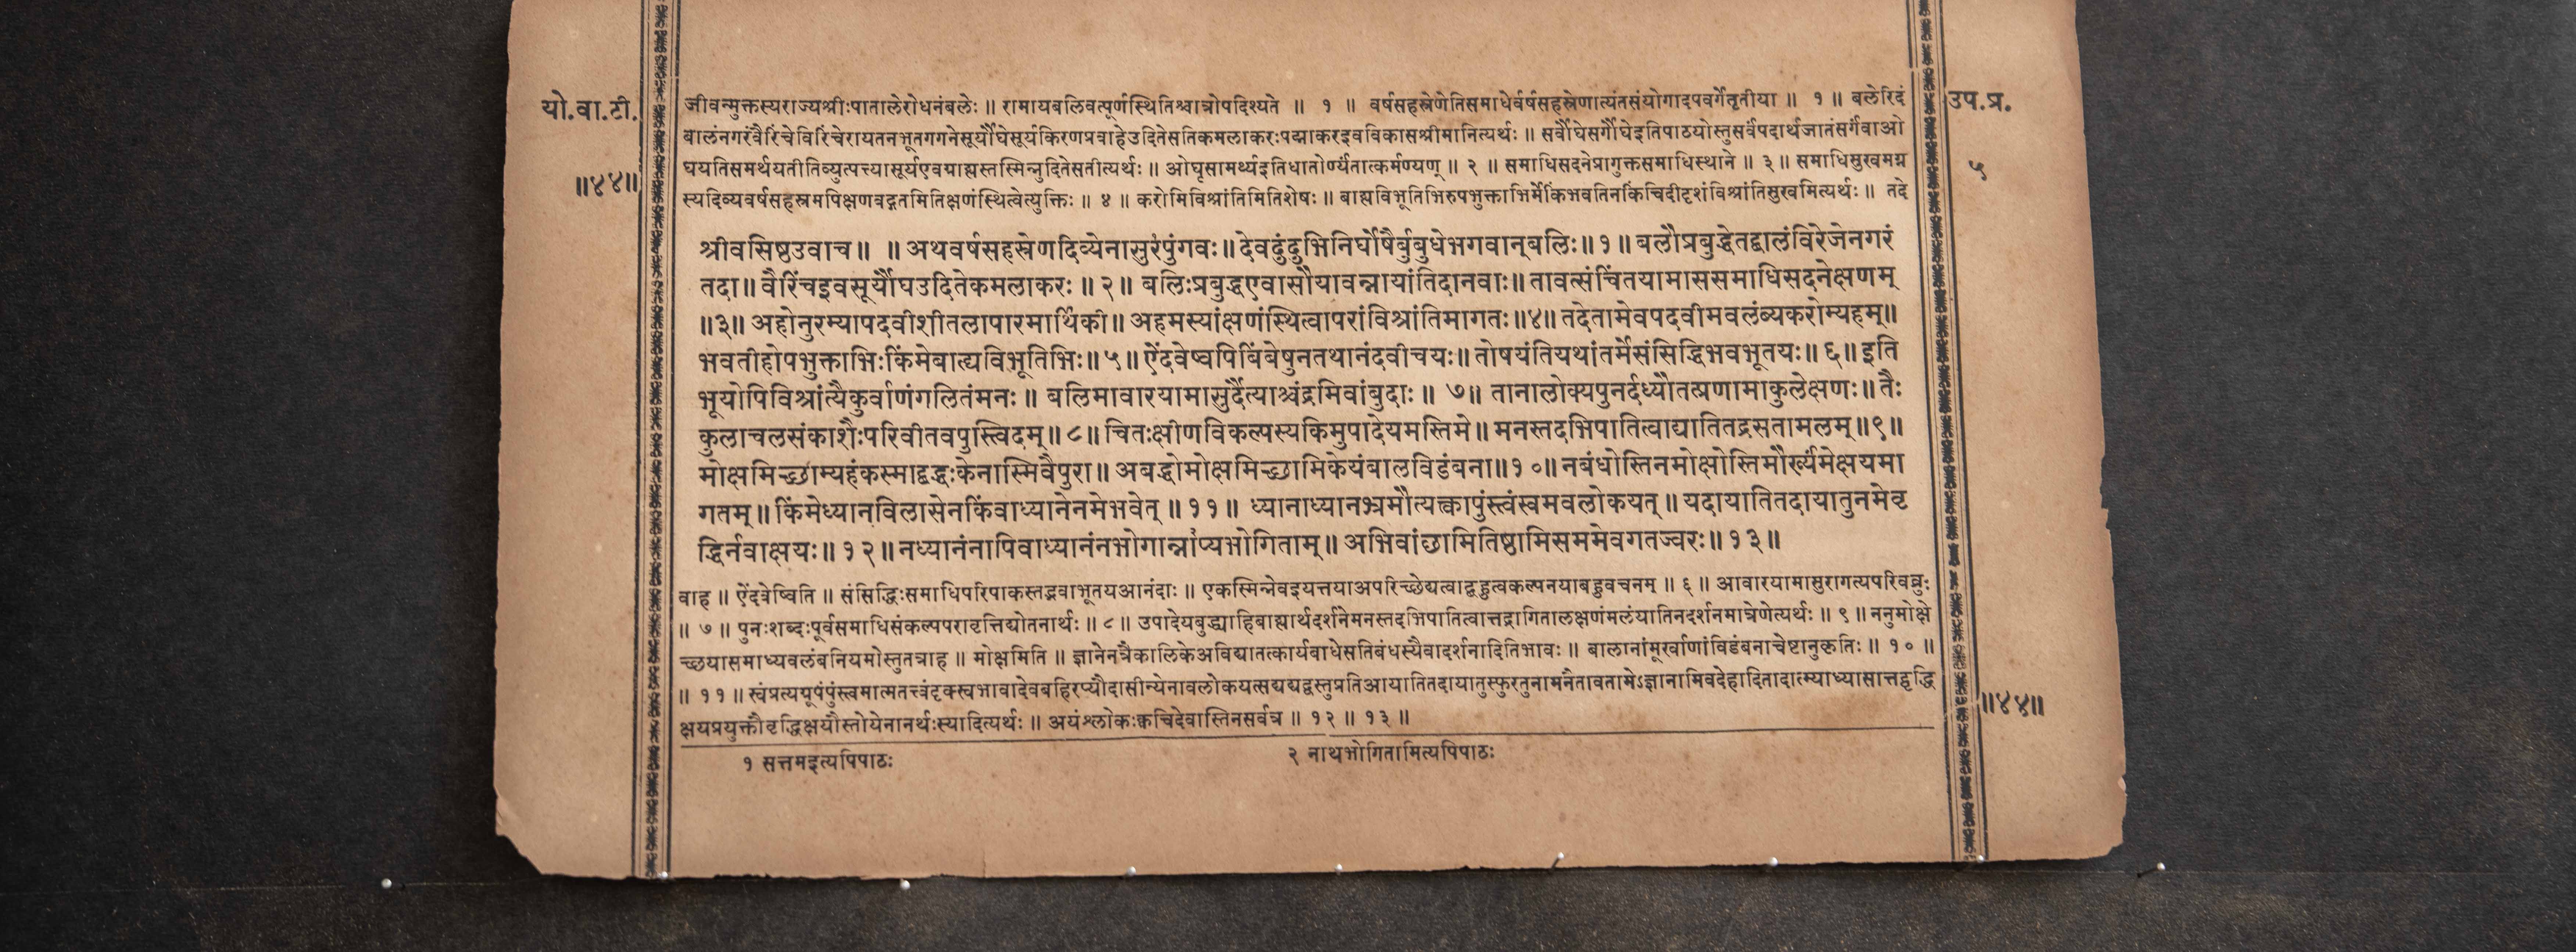 यो.वा.टी.
॥४४॥
जीवन्मुक्तस्यराज्यश्रीःपातालेरोधनंबलेः ॥ रामायबलिवत्पूर्णस्थितिश्चात्रोपदिश्यते ॥ १ ॥ वर्षसहस्रेणेतिसमाधेर्वर्षसहस्रेणात्यंतसंयोगादपवर्गेतृतीया ॥ १ ॥ बलेरिदं
बालंनगरंवैरिंचेविरिंचेरायतनभूतगगनेसूर्यौघेसूर्यकिरणप्रवाहेउदितेसतिकमलाकरःपद्माकरइवविकासश्रीमानित्यर्थः ॥ सर्वौघेसर्गौघेइतिपाठयोस्तुसर्वपदार्थजातंसर्गंवाओ
घयतिसमर्थयतीतिव्युत्पत्त्यासूर्यएवग्राह्यस्तस्मिन्नुदितेसतीत्यर्थः ॥ ओघृसामर्थ्यइतिधातोर्ण्यंतात्कर्मण्यण् ॥ २ ॥ समाधिसदनेप्रागुक्तसमाधिस्थाने ॥ ३ ॥ समाधिसुखमग्न
स्यदिव्यवर्षसहस्रमपिक्षणवद्गतमितिक्षणंस्थित्वेत्युक्तिः ॥ ४ ॥ करोमिविश्रांतिमितिशेषः ॥ बाह्यविभूतिभिरुपभुक्ताभिर्मेकिंभवतिनकिंचिदीदृशंविश्रांतिसुखमित्यर्थः ॥ तदे
श्रीवसिष्ठउवाच ॥ ॥ अथवर्षसहस्रेणदिव्येनासुरपुंगवः ॥ देवदुंदुभिनिर्घोषैर्बुबुधेभगवान्बलिः ॥१॥ बलौप्रबुद्धेतद्बालंविरेजेनगरं
तदा ॥ वैरिंचइवसूर्यौघउदितेकमलाकरः ॥ २॥ बलिःप्रबुद्धएवासौयावन्नायांतिदानवाः ॥ तावत्संचिंतयामाससमाधिसदनेक्षणम्
॥३॥ अहोनुरम्यापदवीशीतलापारमार्थिकी ॥ अहमस्यांक्षणंस्थित्वापरांविश्रांतिमागतः ॥४॥ तदेतामेवपदवीमवलंब्यकरोम्यहम् ॥
भवतीहोपभुक्ताभिःकिंमेबाह्यविभूतिभिः ॥ ५ ॥ ऐंदवेष्वपिबिंबेषुनतथानंदवीचयः ॥ तोषयंतियथांतर्मेसंसिद्धिभवभूतयः ॥ ६ ॥ इति
भूयोपिविश्रांत्यैकुर्वाणंगलितंमनः ॥ बलिमावारयामासुर्दैत्याश्चंद्रमिवांबुदाः ॥ ७॥ तानालोक्यपुनर्दध्यौतत्प्रणामाकुलेक्षणः ॥ तैः
कुलाचलसंकाशैःपरिवीतवपुस्त्विदम् ॥ ८ ॥ चितःक्षीणविकल्पस्यकिमुपादेयमस्तिमे ॥ मनस्तदभिपातित्वाद्यातितद्रसतामलम् ॥९॥
मोक्षमिच्छाम्यहंकस्माद्बद्धःकेनास्मिवैपुरा ॥ अबद्धोमोक्षमिच्छामिकेयंबालविडंबना ॥१०॥ नबंधोस्तिनमोक्षोस्तिमौर्ख्यंमेक्षयमा
गतम् ॥ किंमेध्यानविलासेनकिंवाध्यानेनमेभवेत् ॥ ११ ॥ ध्यानाध्यानभ्रमौत्यक्त्वापुंस्त्वंस्वमवलोकयत् ॥ यदायातितदायातुनमेवृ
द्धिर्नवाक्षयः ॥ १२ ॥ नध्यानंनापिवाध्यानंनभोगान्नाप्यभोगिताम् ॥ अभिवांछामितिष्ठामिसममेवगतज्वरः ॥ १३ ॥
वाह ॥ ऐंदवेष्विति ॥ संसिद्धिःसमाधिपरिपाकस्तद्भवाभूतयआनंदाः ॥ एकस्मिन्नेवइयत्तयाअपरिच्छेद्यत्वाद्बहुत्वकल्पनयाबहुवचनम् ॥ ६ ॥ आवारयामासुरागत्यपरिवव्रुः
॥ ७ ॥ पुनःशब्दःपूर्वसमाधिसंकल्पपरावृत्तिद्योतनार्थः ॥ ८ ॥ उपादेयबुद्ध्याहिबाह्यार्थदर्शनेमनस्तदभिपातित्वात्तद्रागितालक्षणंमलंयातिनदर्शनमात्रेणेत्यर्थः ॥ ९ ॥ ननुमोक्षे
च्छयासमाध्यवलंबनियमोस्तुतत्राह ॥ मोक्षमिति ॥ ज्ञानेनत्रैकालिकेअविद्यातत्कार्यबाधेसतिबंधस्यैवादर्शनादितिभावः ॥ बालानांमूर्खाणांविडंबनाचेष्टानुकृतिः ॥ १० ॥
॥ ११ ॥ स्वंप्रत्यग्रूपंपुंस्त्वमात्मतत्त्वंदृक्स्वभावादेवबहिरप्यौदासीन्येनावलोकयत्सद्यद्यद्वस्तुप्रतिआयातितदायातुस्फुरतुनामनैतावतामेऽज्ञानामिवदेहादितादात्म्याध्यासात्तद्वृद्धि
क्षयप्रयुक्तौवृद्धिक्षयौस्तोयेनानर्थःस्यादित्यर्थः ॥ अयंश्लोकःक्वचिदेवास्तिनसर्वत्र ॥ १२ ॥ १३ ॥
१ सत्तमइत्यपिपाठः
२ नाथभोगितामित्यपिपाठः
उप.प्र.
५
॥४४॥